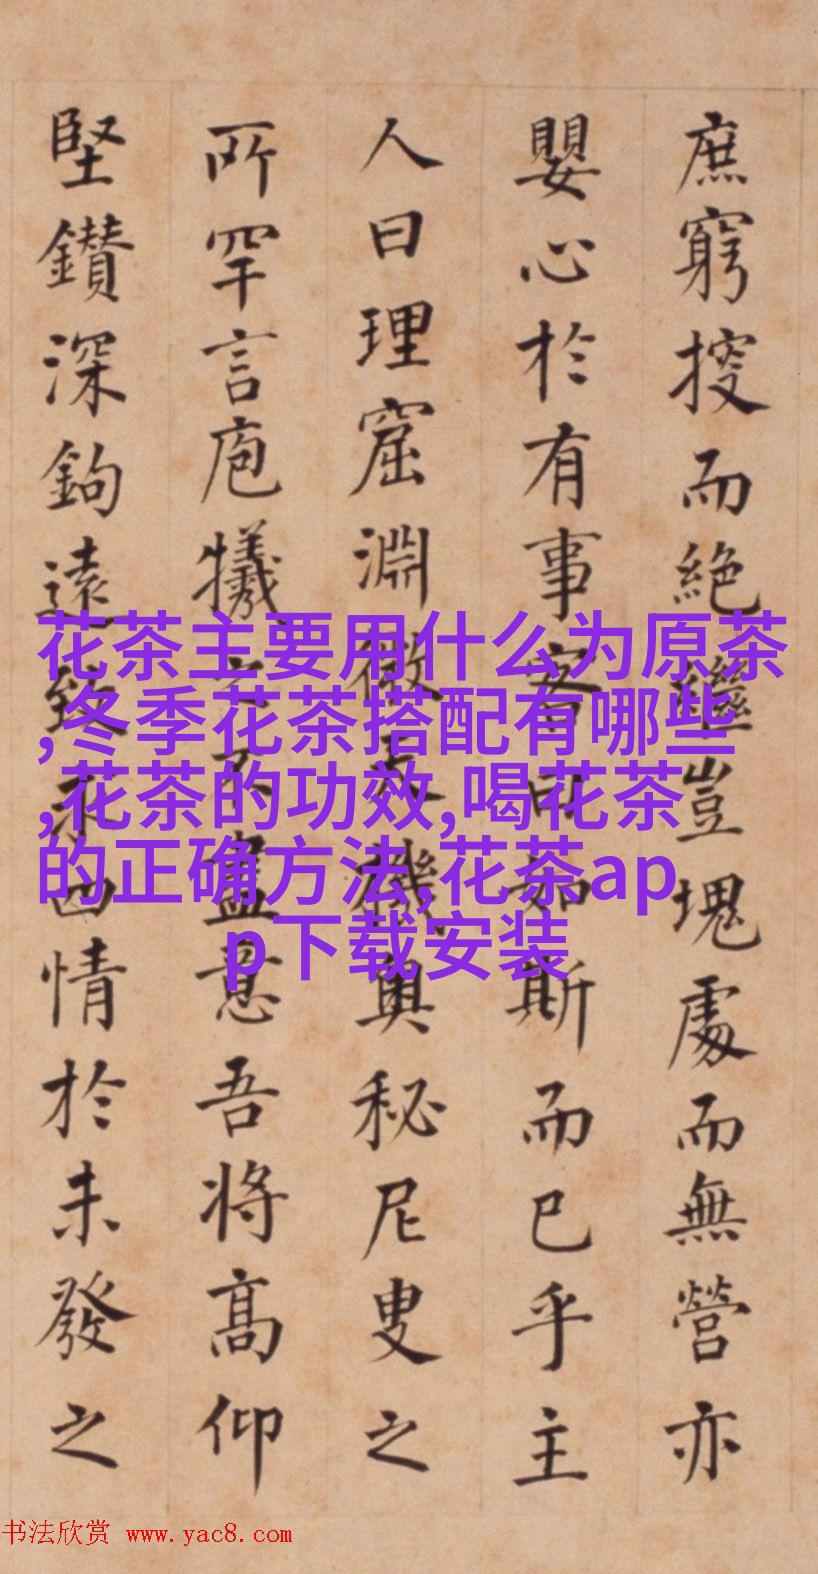 庶窮挍而絶繼豈塊處而無營亦
嬰心於有事客曰如斯而已乎主
人曰理窟淵微天機奥秘尼叟之
所罕言庖犧之不盡意吾将髙仰
堅鑚深鉤遠致求四情於未發之
花茶主要用什么为原茶
,冬季花茶搭配有哪些
,花茶的功效,喝花茶
的正确方法,花茶ap
p下载安装
书法欣赏 www.yac8.com